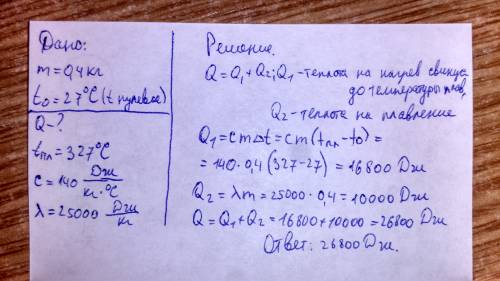 Дано:
m = 0,4 кг
t₀ = 27°C (t нулевое)
Q - ?
tпл = 327°C
c = 140 Дж/кг·°C
λ = 25000 Дж/кг
Решение.
Q = Q₁ + Q₂; Q₁ - теплота на нагрев свинца
до температуры плав.
Q₂ - теплота на плавление
Q₁ = cmΔt = cm(tпл - t₀) =
= 140 · 0,4 (327-27) = 16800 Дж
Q₂ = λm = 25000 · 0,4 = 10000 Дж
Q = Q₁ + Q₂ = 16800 + 10000 = 26800 Дж
Ответ: 26800 Дж.